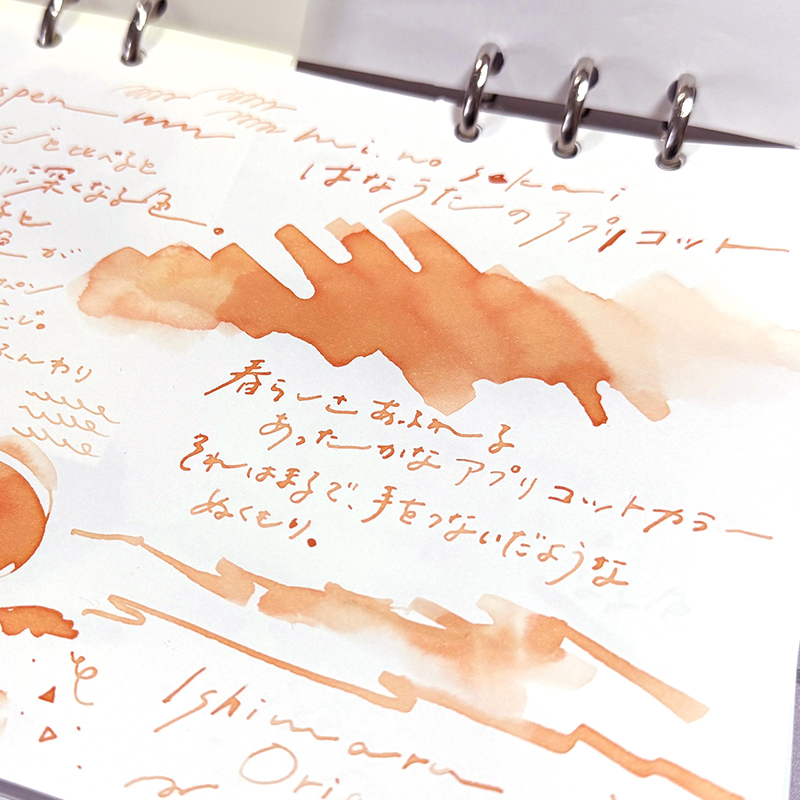 spen
mi. no sekai
はなうたのアプリコット
ジと比べると
が深くなる色。
ると
色が
ふんわり
春らしさあふれる
あったかなアプリコットカラー
それはまるで、手をつないだような
ぬくもり。
Ishimaru
Orig